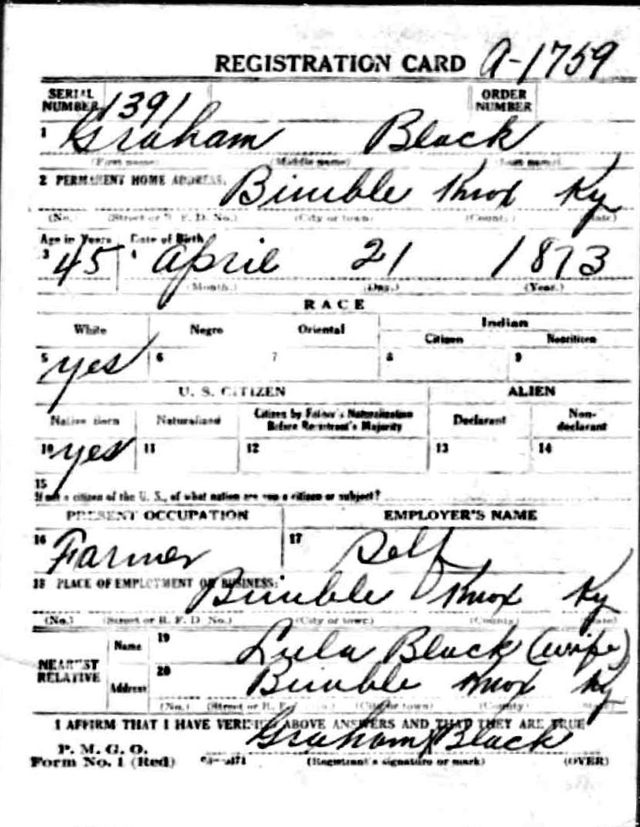 REGISTRATION CARD A-1759
SERIAL NUMBER 1391 ORDER NUMBER
1 Graham Black
(First name) (Middle name) (Last name)
2 PERMANENT HOME ADDRESS: Bimble Knox Ky
(No.) (Street or R. F. D. No.) (City or town) (County) (State)
Age in Years Date of Birth
3 45 4 April 21 1873
(Month.) (Day.) (Year.)
RACE
White Negro Oriental Indian
Citizen Noncitizen
5 yes 6 7 8 9
U. S. CITIZEN ALIEN
Native Born Naturalized Citizen by Father's Naturalization Before Registrant's Majority Declarant Non-declarant
10 yes 11 12 13 14
15
If not a citizen of the U. S., of what nation are you a citizen or subject?
PRESENT OCCUPATION EMPLOYER'S NAME
16 Farmer 17 Self
18 PLACE OF EMPLOYMENT OR BUSINESS: Bimble Knox Ky
(No.) (Street or R. F. D. No.) (City or town) (County) (State)
NEAREST RELATIVE Name 19 Lula Black (wife)
Address 20 Bimble Knox Ky
(No.) (Street or R. F. D. No.) (City or town) (County) (State)
I AFFIRM THAT I HAVE VERIFIED ABOVE ANSWERS AND THAT THEY ARE TRUE
Graham Black
P. M. G. O.
Form No. 1 (Red) (Registrant's signature or mark) (OVER)